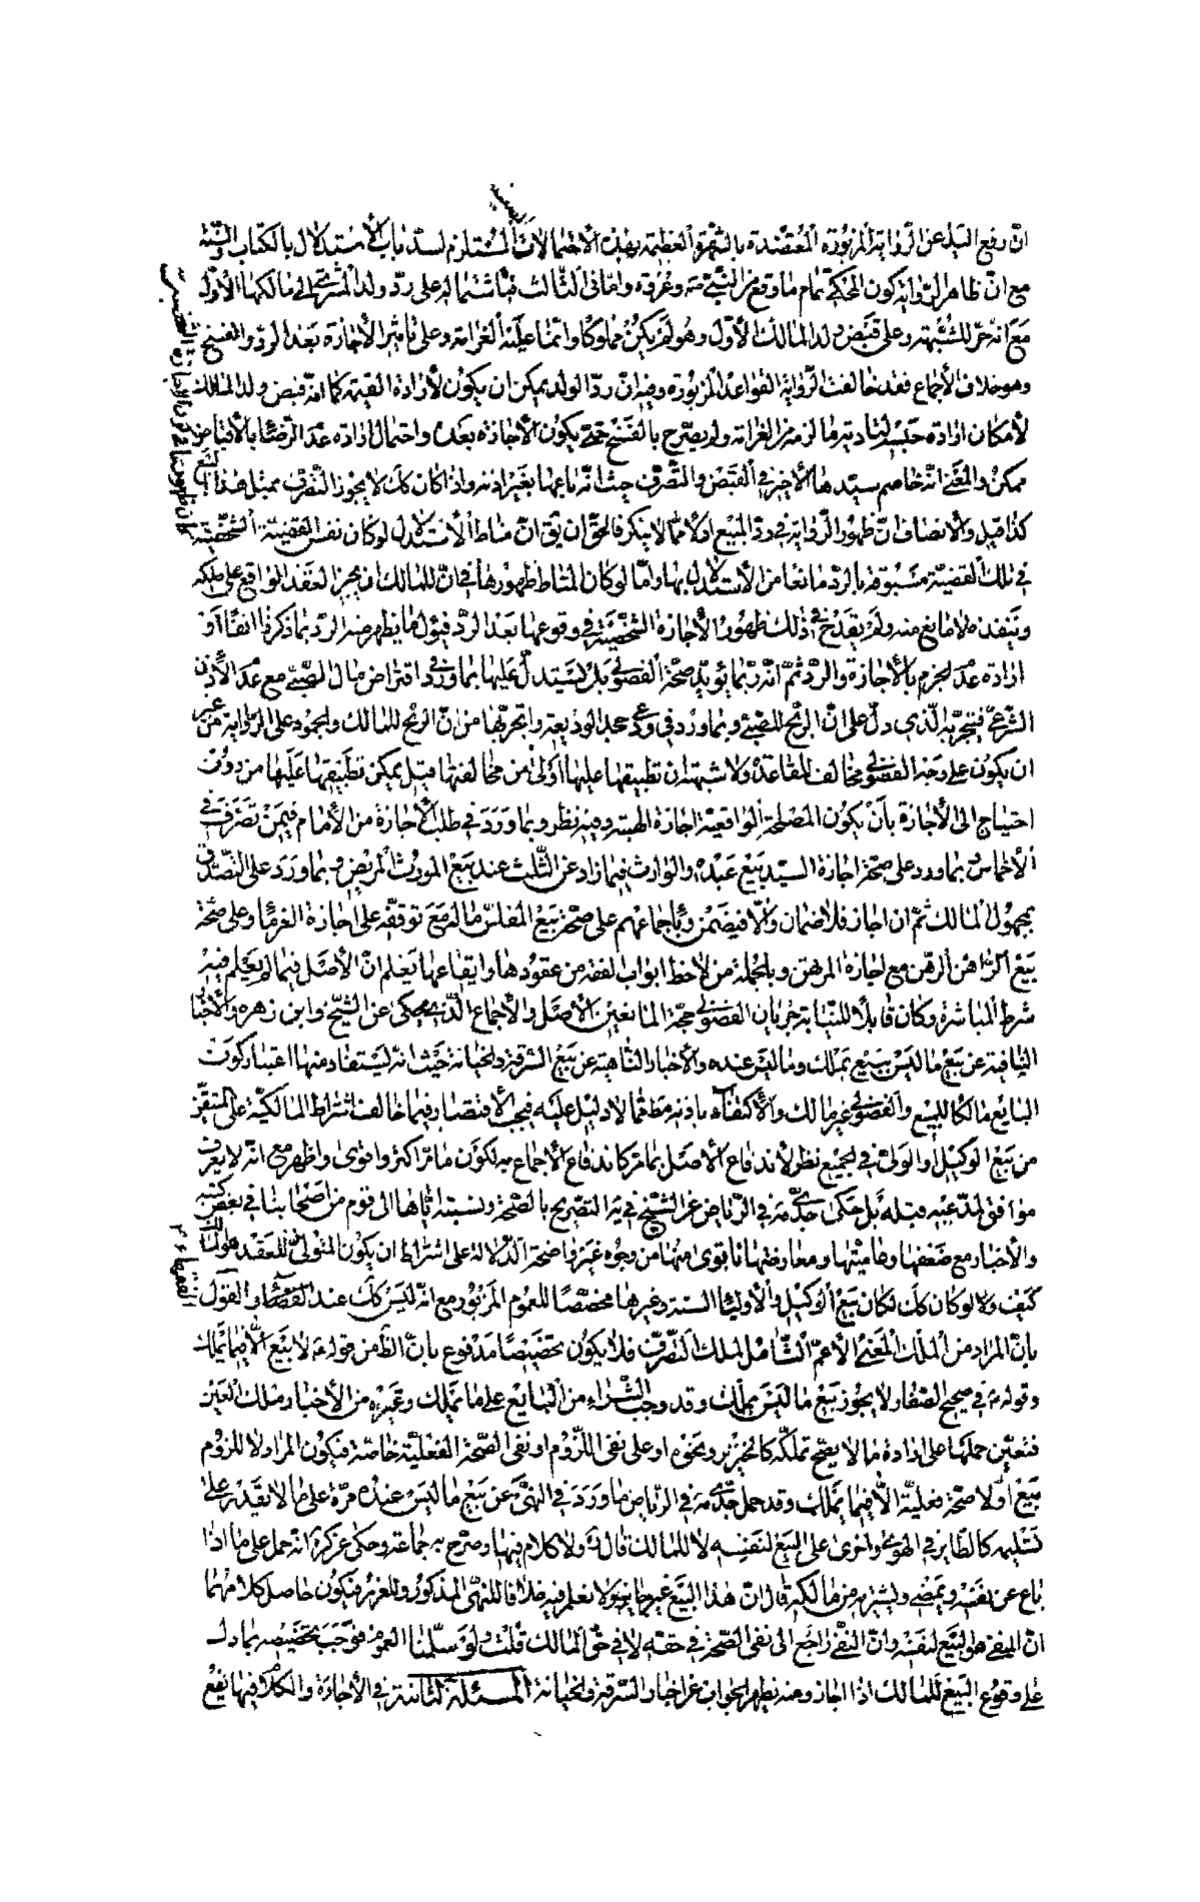 انّ رفع اليد عن الرّواية المزبورة المعتضدة بالشّهرة العظيمة بهذه الاحتمالات المستلزم لسدّ باب الاستدلال بالكتاب والسّنّة
مع انّ ظاهر الرّواية كون المحكيّ تمام ما وقع من القضيّة وعرفه وامّا في الثّالث فباشتماله على ردّ ولد المشتري الى مالكها الأوّل
مع انه حرّ للشّبهة وعلى قبض ولد المالك الأوّل وهو لم يكن مملوكا وانّما عليه الغرامة وعلى تأثير الأجازة بعد الردّ والفسخ
وهو خلاف الأجماع فقد خالفت الرّواية القواعد المزبورة وفيه انّ ردّ الولد يمكن ان يكون لأرادة القيمة كما انّه قبض ولد المالك
لأمكان ارادة حبسه لتادية ما لزمه من الغرامة ولم يصرّح بالفسخ حتّى يكون الأجازة بعده واحتمال ارادة عدم الرّضا بالأقباض
ممكن والمعنى انّه خاصم سيّدها الأخير في القبض والتّصرّف حيث انّه باعها بغير اذنه واذا كان كك لا يجوز التّصرّف بمثل هذا البيع
كذا قيل والأنصاف انّ ظهور الرّواية في ردّ البيع اوّلا ممّا لا ينكر فالحقّ ان يق انّ مناط الأستدلال لو كان نفس القضيّة الشّخصيّة
في تلك القضيّة مسبوقة بالردّ مانعا من الأستدلال بها وامّا لو كان المناط ظهورها في انّ للمالك ان يجيز العقد الواقع على ملكه
وينفذه فلا مانع منه ولم يقدح في ذلك ظهور الأجازة الشّخصيّة في وقوعها بعد الردّ فيؤل ما يظهر منه الردّ بما ذكرنا انفا او
ارادة عدم الجزم بالأجازة والردّ ثمّ انّه ربّما يؤيد صحّة الفضولى بل يستدلّ عليها بما ورد في اقتراض مال الصّبى مع عدم الأذن
الشّرعى فيتجر به الّذى دلّ على انّ الربح للصّبى وبما ورد في ودعى جحد الوديعة واتجر بها من انّ الربح للمالك والجمود على الرّواية من غير
ان يكون على وجه الفضولى مخالف للقاعدة ولا شبهة ان تطبيقها عليها اولى من مخالفتها قيل يمكن تطبيقها عليها من دون
احتياج الى الأجازة بأن يكون المصلحة الواقعيّة اجازة الهيته وفيه نظر وبما ورد في طلب الأجازة من الأمام فيمن تصرّف في
الأخماس وبما ورد على صحّة اجازة السيّد بيع عبده والوارث فيما زاد عن الثّلث عند بيع المورث المريض وبما ورد على التصّدق
بمجهول المالك ثمّ ان اجاز فلا ضمان والّا فيضمن وبأجماعهم على صحّة بيع المفلّس ماله مع توقّفه على اجازة الغرماء وعلى صحّة
بيع الرّاهن الرّهن مع اجازة المرتهن وبالجملة من لاحظ ابواب الفقه من عقودها وايقاعها يعلم انّ الأصل فيما لم يعلم فيه
شرط المباشرة وكان قابلا للنّيابة جريان الفضولى حجّة المانعين الأصل والأجماع الّذى يحكى عن الشّيخ وابن زهره والأخبار
النّافية عن بيع ما ليس بملك وما ليس عنده والأخبار النّاهية عن بيع السّرقة والخيانة حيث انّه يستفاد منها اعتبار كون
البايع مالكا للبيع والفضولى غير مالك والأكتفاء باذنه مط ممّا لا دليل عليه فيجب الأقتصار فيما خالف اشتراط المالكيّة على المتيقّن
من بيع الوكيل او الولىّ وفي الجميع نظر لأندفاع الأصل بما مرّ كاندفاع الأجماع به لكون ما مرّ اكثر واقوى واظهر مع انّه لا يعرف
موافق لمدّعيه قبله بل حكى جدّى مه في الرّياض عن الشّيخ في يه التصريح بالصّحّة ونسبته ايّاها الى قوم من اصحابنا في بعض كتبه
والأخبار مع ضعفها وعاميّتها ومعارضتها باقوى منها من وجوه غير واضحة الدّلالة على اشتراط ان يكون المتولّى للعقد هو المالك
كيف ولو كان كك لكان بيع الوكيل والأولياء الستة وغيرها مخصّصا للعموم المزبور مع انّه ليس كك عند الفقهاء والقول
بانّ المراد من الملك المعنى الأعمّ الشّامل لملك التّصرّف فلا يكون تخصيصا مدفوع بانّ الظّ من قوله ع لا بيع الّا فيما يملك
وقوله ع في صحيح الصّفار لا يجوز بيع ما ليس يملك وقد وجب الشّراء من البايع على ما يملك وغيره من الأخبار ملك العين
فتعيّن حملها على ارادة ما لا يصحّ تملّكه كالخنزير ونحوه او على نفى اللّزوم او نفى الصّحّة الفعليّة خاصّة فيكون المراد لا لزوم
بيع او لا صحّة فعليّة الّا فيما يملك وقد حمل جدّى مه في الرّياض ما ورد في النّهى عن بيع ما ليس عنده مرّة على ما لا يقدر على
تسليمه كالطّاير في الهواء واخرى على البيع لنفسه لا للمالك قال مه ولا كلام فيها وصرّح به جماعة وحكى عن كره انّه حمل على ما اذا
باع عن نفسه ويمضى ويشتريه من مالكه قال انّ هذا البيع غير جايز ولا نعلم فيه خلافا للنّهى المذكور وللغرر فيكون حاصل كلامهما
انّ المنفى هو البيع لنفسه وانّ النّفى راجع الى نفى الصّحّة في حقّه لا في حقّ المالك قلت ولو سلّمنا العموم فوجب تخصيصه بما دلّ
على وقوع البيع للمالك اذا اجاز ومنه يظهر الجواب عن اخبار السّرقة والخيانة المسئلة الثانية في الأجازة والكلام فيها يقع